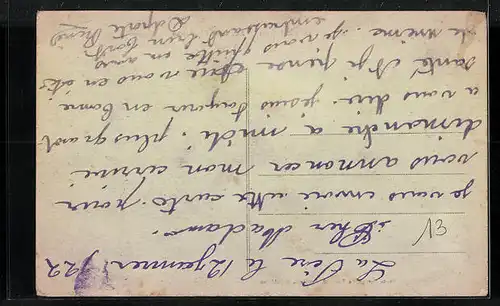 La Fère le 12 janvier 1922
Cher Madame
je vous envoie cette carte pour
vous annoncer mon arrivée
dimanche a midi. plus grand
a vous dire. je suis toujour en bonne
santé et je pense être vous en
de meme. je vous quitte en vous
embrassant bien fort
13